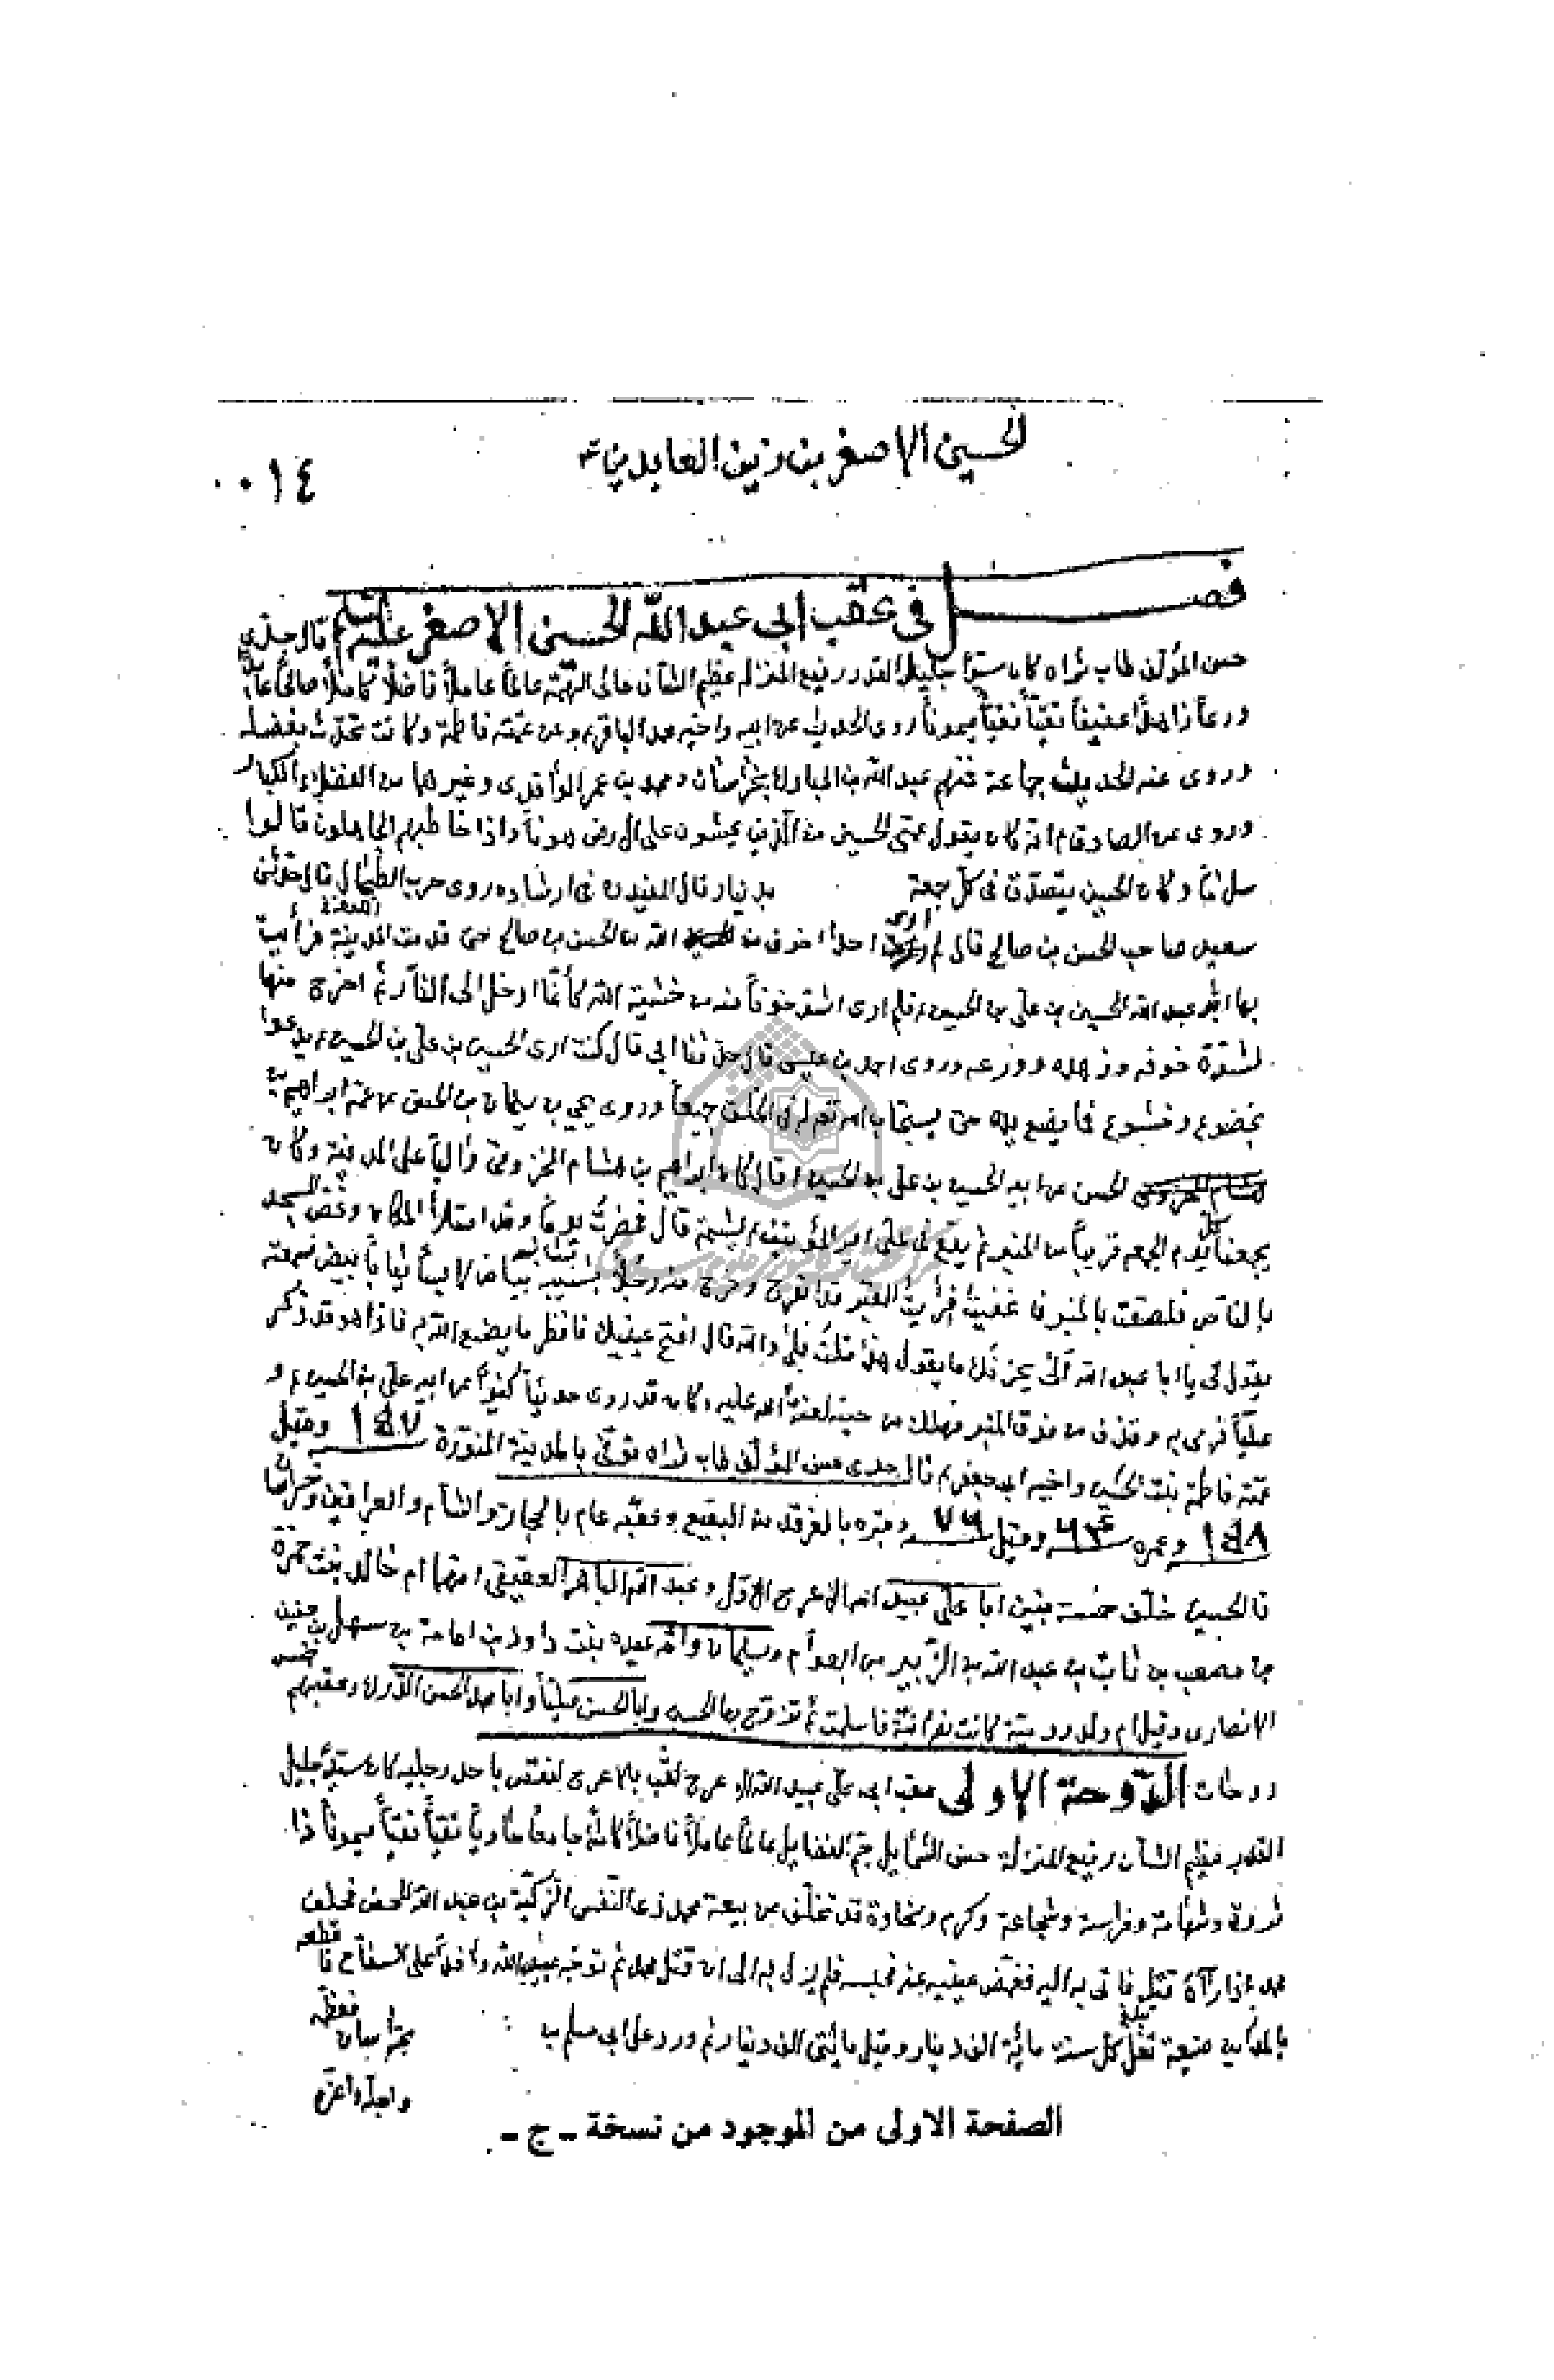 الحسين الاصغر بن زين العابدين ع
٠٠١٤
فصل في عقب ابي عبد الله الحسين الاصغر عليه السلم قال جدي
حسن المؤلف طاب ثراه كان سيدا جليل القدر رفيع المنزله عظيم الشأن عالى الهمة عالماً عاملاً فاضلاً كاملاً صالحاً عابداً
ورعاً زاهداً عفيفاً تقيّاً نقيّاً ميموناً روى الحديث عن ابيه واخيه محمد الباقر ع وعن عمته فاطمة وكانت تحدث بفضله
وروى عنه الحديث جماعة منهم عبد الله بن المبارك بخراسان ومحمد بن عمر الواقدى وغيرهما من الفضلاء الكبار
وروى عن الصادق ع انه كان يقول عمّى الحسين من الّذين يمشون على الارض هوناً واذا خاطبهم الجاهلون قالوا
سلاماً وكان الحسين يتصدّق فى كلّ جمعة بدينار وقال المفيد ره فى ارشاده روى حرب الطحّال قال حدّثنى
سعيد صاحب الحسن بن صالح قال لم ارى احداً اخوف من الله من الحسن بن صالح حتى قدمت المدينة فرأيت
بها ابو عبد الله الحسين بن على بن الحسين ع فلم ارى اشدّ خوفاً منه من خشية الله كأنّما ادخل الى النّار ثم اخرج منها
لشدّة خوفه وزهده وورعه وروى احمد بن عيسى قال حدّثنا ابي قال كنت ارى الحسين بن على بن الحسين ع يدعوا
بخضوع وخشوع فما يضع يده حتى يستجاب له فى الخلق جميعاً وروى يحيى بن سليمان بن الحسن عن عمّه ابراهيم بن
الحسن عن ابيه الحسين بن على بن الحسين ع قال كان ابراهيم بن هشام المخزومى والياً على المدينة وكان
يجمعنا كل يوم الجمعه قريباً من المنبر ثم يقع فى علىّ امير المؤمنين ع يشتمه قال فحضرت يوماً وقد امتلأ المكان وغصّ المسجد
بالناس فلصقت بالمنبر فاغفيت فرأيت القبر قد انفرج وخرج منه رجلٌ بياض لابساً ثياباً بيض فسمعته
يقول لى يا ابا عبد الله الا يحزنك ما يقول هذا قلت بلى والله قال افتح عينيك فانظر ما يصنع الله به فاذا هو قد ذكر
عليّاً فرمى به وقذف من فوق المنبر فهلك من حينه لعنة الله عليه وكان قد روى حديثاً كثيراً عن ابيه على بن الحسين ع و
عمّته فاطمة بنت الحسين واخيه ابى جعفر ع قال جدى حسن المؤلف طاب ثراه توفّى بالمدينة المنورة ١٥٧ وقيل
١٥٨ وعمره ٦٤ وقيل ٧٦ وقبره بالغرقد من البقيع وعقبه عام بالحجاز والشام والعراقين وخراسان
فالحسين خلّف خمسة بنين ابا على عبيد الله الاعرج الاوّل وعبد الله الباهر العقيقى امّهما ام خالد بنت حمزة
بن مصعب بن ثابت بن عبد الله بن الزّبير بن العوام وسليمان وامّه عبده بنت داود بن امامة بن سهل بن حنيف
الانصارى وقيل ام ولد رومية كانت نصرانيّة فاسلمت ثم تزوّج بها الحسين وابا الحسن عليّاً وابا محمد الحسن الدّرك وعقبهم خمس
دوحات الدّوحة الاولى عقب ابى على عبيد الله الاعرج لقّب بالاعرج لنقص باحد رجليه كان سيداً جليل
القدر عظيم الشأن رفيع المنزلة حسن الشمايل جمّ الفضايل عالماً عاملاً فاضلاً كاملاً جامعاً تقيّاً نقيّاً ميموناً ذا
ثروة وشهامة وفراسة وشجاعة وكرم وسخاوة قد تخلّف عن بيعة محمد ذى النّفس الزكيّة بن عبد الله المحض فحلف
محمد اذا رآه قتله فاتى به اليه فغمّض عينيه عنه فحبسه فلم يزل به الى ان قتل محمد ثم توجّه عبيد الله وافداً على السفاح فاقطعه
بالمداين ضيعة تغلّ كل سنة مائة الف دينار وقيل مأتى الف دينار ثم ورد على ابى مسلم بخراسان فعظّمه
واجلّه واعزّه
الصفحة الاولى من الموجود من نسخة ـ ج ـ